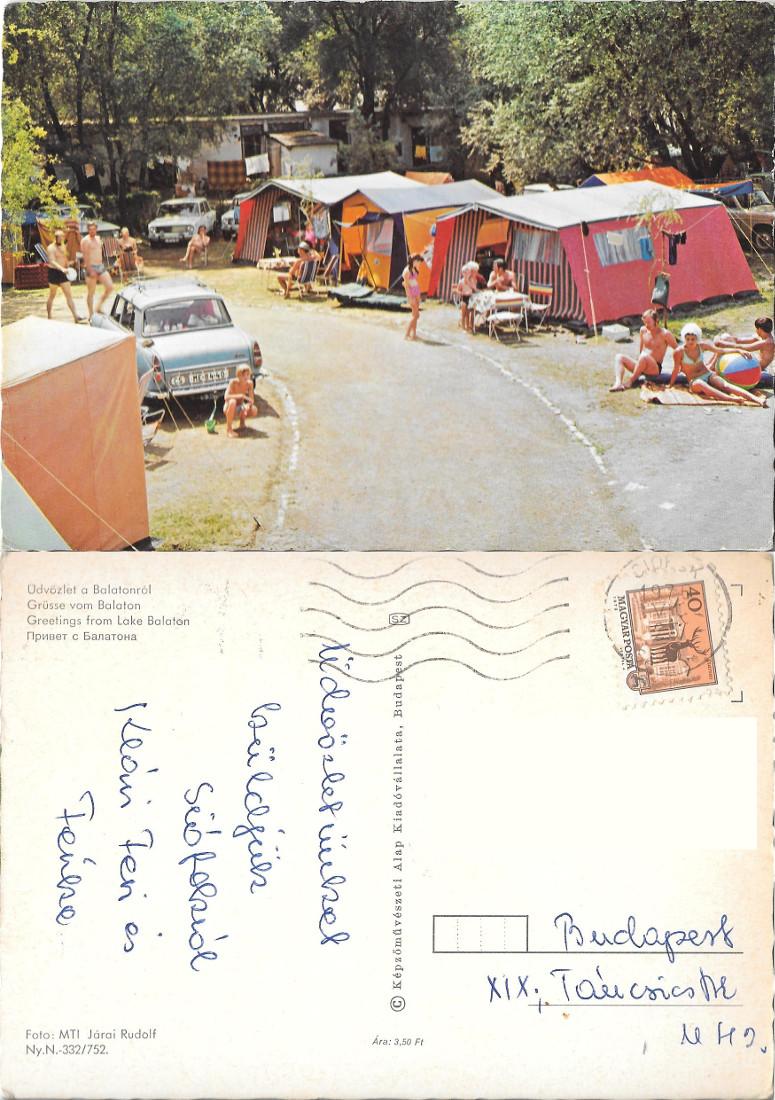 Üdvözlet a Balatonról
Grüsse vom Balaton
Greetings from Lake Balaton
Привет с Балатона
SZ
40
MAGYAR POSTA
Üdvözletünket
küldjük
Siófokról
Klári Feri és
Ferike
© Képzőművészeti Alap Kiadóvállalata, Budapest
Budapest
XIX.
Foto: MTI Járai Rudolf
Ny.N.-332/752.
Ára: 3,50 Ft